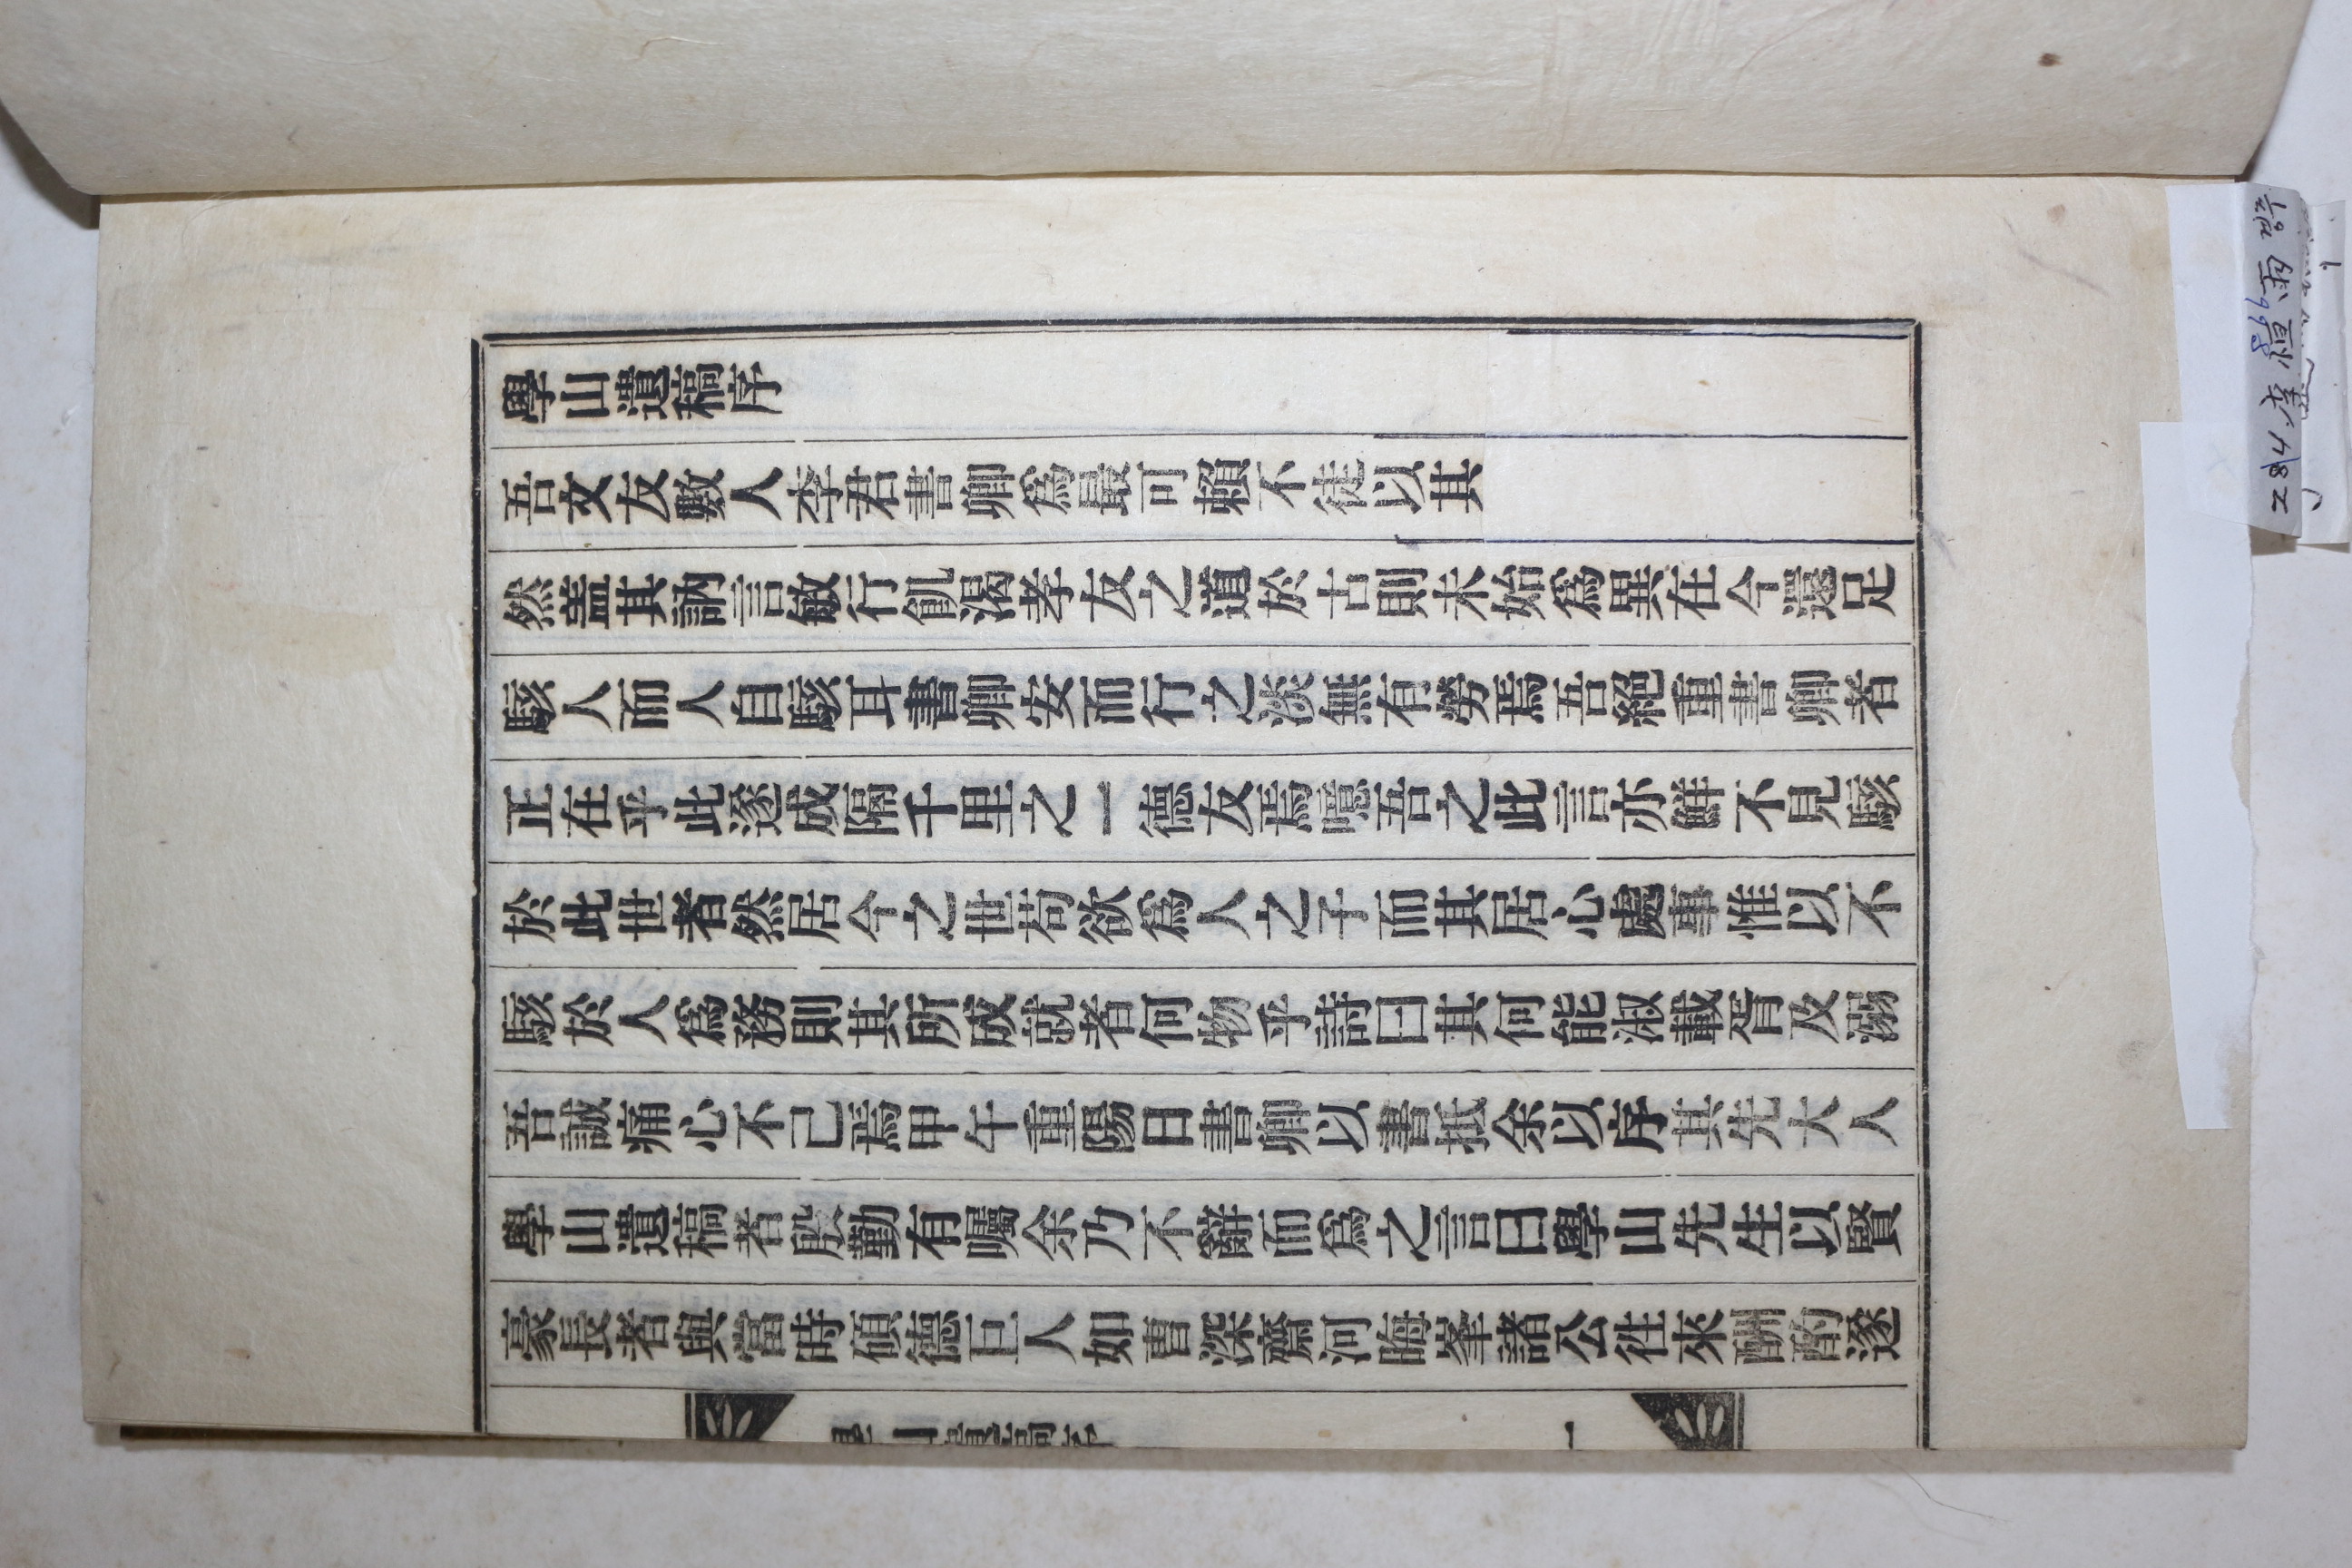 學山遺稿序
吾文友數人李君書卿爲最可賴不徒以其
然盖其訥言敏行飢渴孝友之道於古則未始爲異在今還足
駭人而人自駭耳書卿安而行之淡無有勞焉吾絕重書卿者
正在乎此遂成隔千里之一德友焉噫吾之此言亦鮮不見駭
於此世者然居今之世苟欲爲人之子而其居心處事惟以不
駭於人爲務則其所成就者何物乎詩曰其何能淑載胥及溺
吾誠痛心不已焉甲午重陽日書卿以書抵余以序其先大人
學山遺稿者殷勤有囑余乃不辭而爲之言曰學山先生以賢
豪長者與當時碩德巨人如曹深齋河晦峯諸公往來酬酌遂
學山遺稿序 一